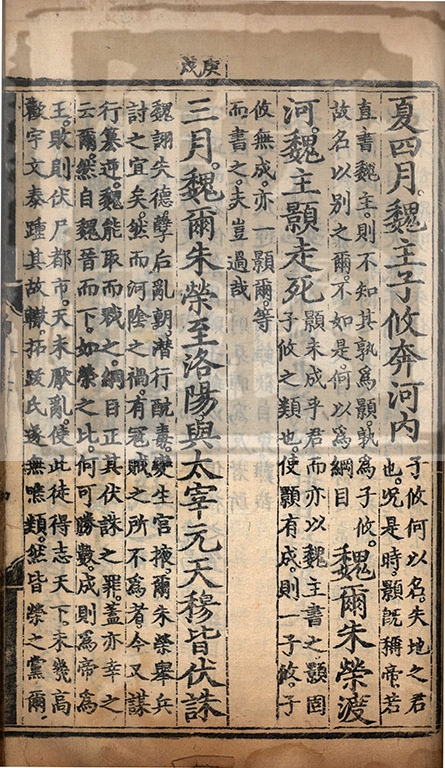 庚戌
夏四月。魏主子攸奔河內
子攸何以名。失地之君
也。况是時。顥旣稱帝。若
直書魏主。則不知其孰爲顥。孰爲子攸。
故名以別之爾。不如是。何以爲綱目
魏爾朱榮渡
河。魏主顥走死
顥未成乎君而亦以魏主書之。顥固
子攸之類也。使顥有成。則一子攸。子
攸無成。亦一顥爾。等
而書之。夫豈過哉
三月。魏爾朱榮至洛陽與太宰元天穆皆伏誅
魏詡失德。孽后亂朝。潛行酖毒。變生宮掖。爾朱榮舉兵
討之宜矣。然而河陰之禍。有寇賊之所不爲者。今又謀
行簒逆。魏能取而戮之。綱目正其伏誅之罪。蓋亦幸之
云爾。然自魏晉而下。如榮之比。何可勝數。成則爲帝爲
王。敗則伏尸都市。天未厭亂。使此徒得志天下。未幾高
歡宇文泰踵其故轍。拓跋氏遂無噍類。然皆榮之黨爾